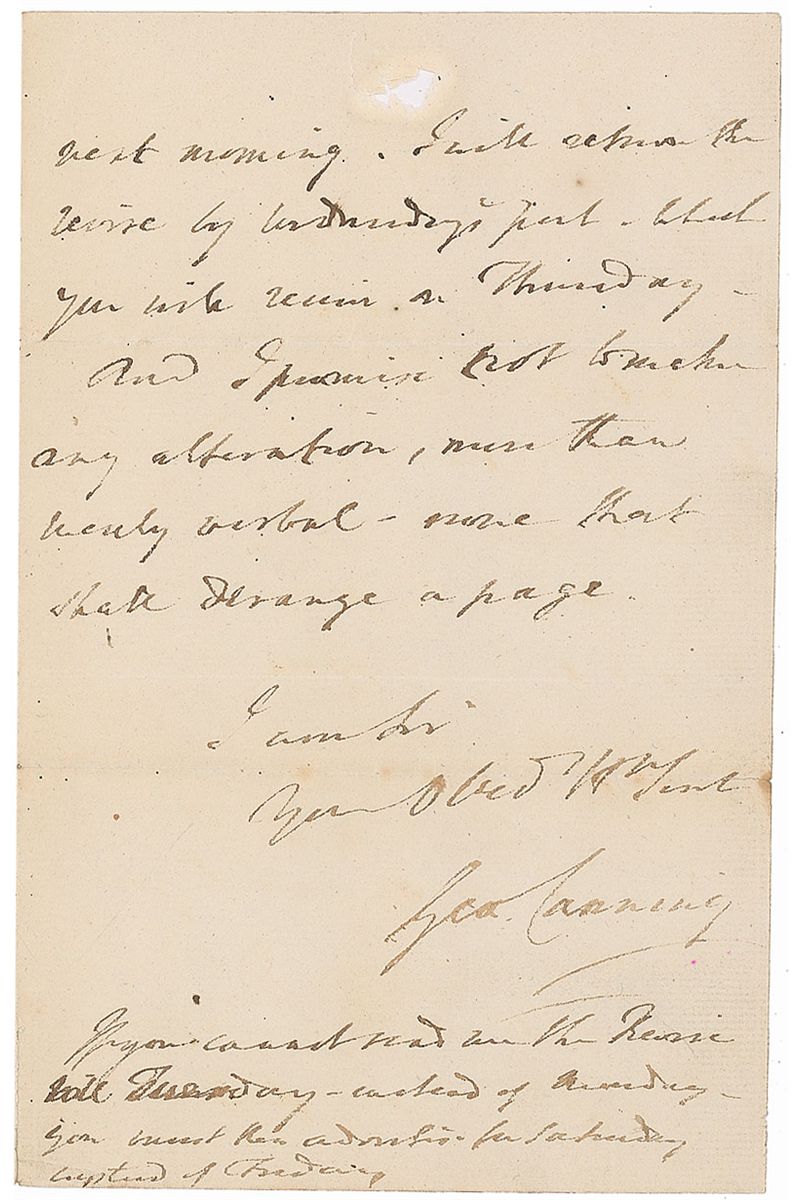 next morning. I will return the
revise by Wednesday's post - which
you will receive on Thursday -
And I promise not to make
any alteration, more than
merely verbal - none that
shall derange a page.
I am Sir
Your Obed H^ble Servt
Geo. Canning
If you cannot send me the Revise
till Tuesday - instead of Monday -
you must then advertise for Saturday
instead of Friday